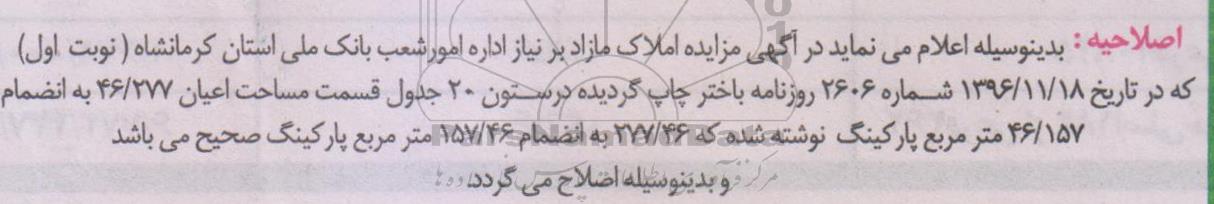 اصلاحیه : بدینوسیله اعلام می نماید در آگهی مزایده املاک مازاد بر نیاز اداره امور شعب بانک ملی استان کرمانشاه ( نوبت اول)
که در تاریخ ۱۳۹۶/۱۱/۱۸ شماره ۲۶۰۶ روزنامه باختر چاپ گردیده درستون ۲۰ جدول قسمت مساحت اعیان ۴۶/۲۷۷ به انضمام
۴۶/۱۵۷ متر مربع پارکینگ نوشته شده که ۲۷۷/۴۶ به انضمام ۱۵۷/۴۶ متر مربع پارکینگ صحیح می باشد
و بدینوسیله اصلاح می گردد.